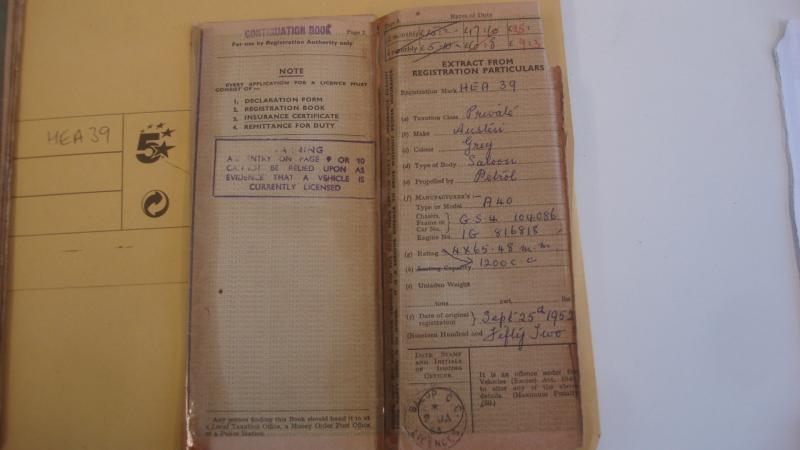 HEA 39
5
CONTINUATION BOOK
Page 2
For use by Registration Authority only
NOTE
EVERY APPLICATION FOR A LICENCE MUST
CONSIST OF:—
1. DECLARATION FORM
2. REGISTRATION BOOK
3. INSURANCE CERTIFICATE
4. REMITTANCE FOR DUTY
ENTRY ON PAGE 9 OR 10
BE RELIED UPON AS
EVIDENCE THAT A VEHICLE IS
CURRENTLY LICENSED
Any person finding this Book should hand it to
Local Taxation Office, a Money Order Post Office,
or a Police Station.
Rates of Duty
monthly
monthly
EXTRACT FROM
REGISTRATION PARTICULARS
Registration Mark HEA 39
(a) Taxation Class Private
(b) Make Austin
(c) Colour Grey
(d) Type of Body Saloon
(e) Propelled by Petrol
(f) MANUFACTURER'S:—
Type or Model A40
Chassis,
Frame or
Car No. GS4 104086
Engine No. 1G 816818
(g) Rating 4X65.48 m.m.
(h) Seating Capacity 1200 c.c
(i) Unladen Weight
tons cwt.
Date of original
registration Sept 25th 1952
(Nineteen Hundred and Fifty Two
DATE STAMP
AND INITIALS
OF ISSUING
OFFICER.
It is an offence under the
Vehicles (Excise) Act,
to alter any of the above
details. (Maximum Penalty